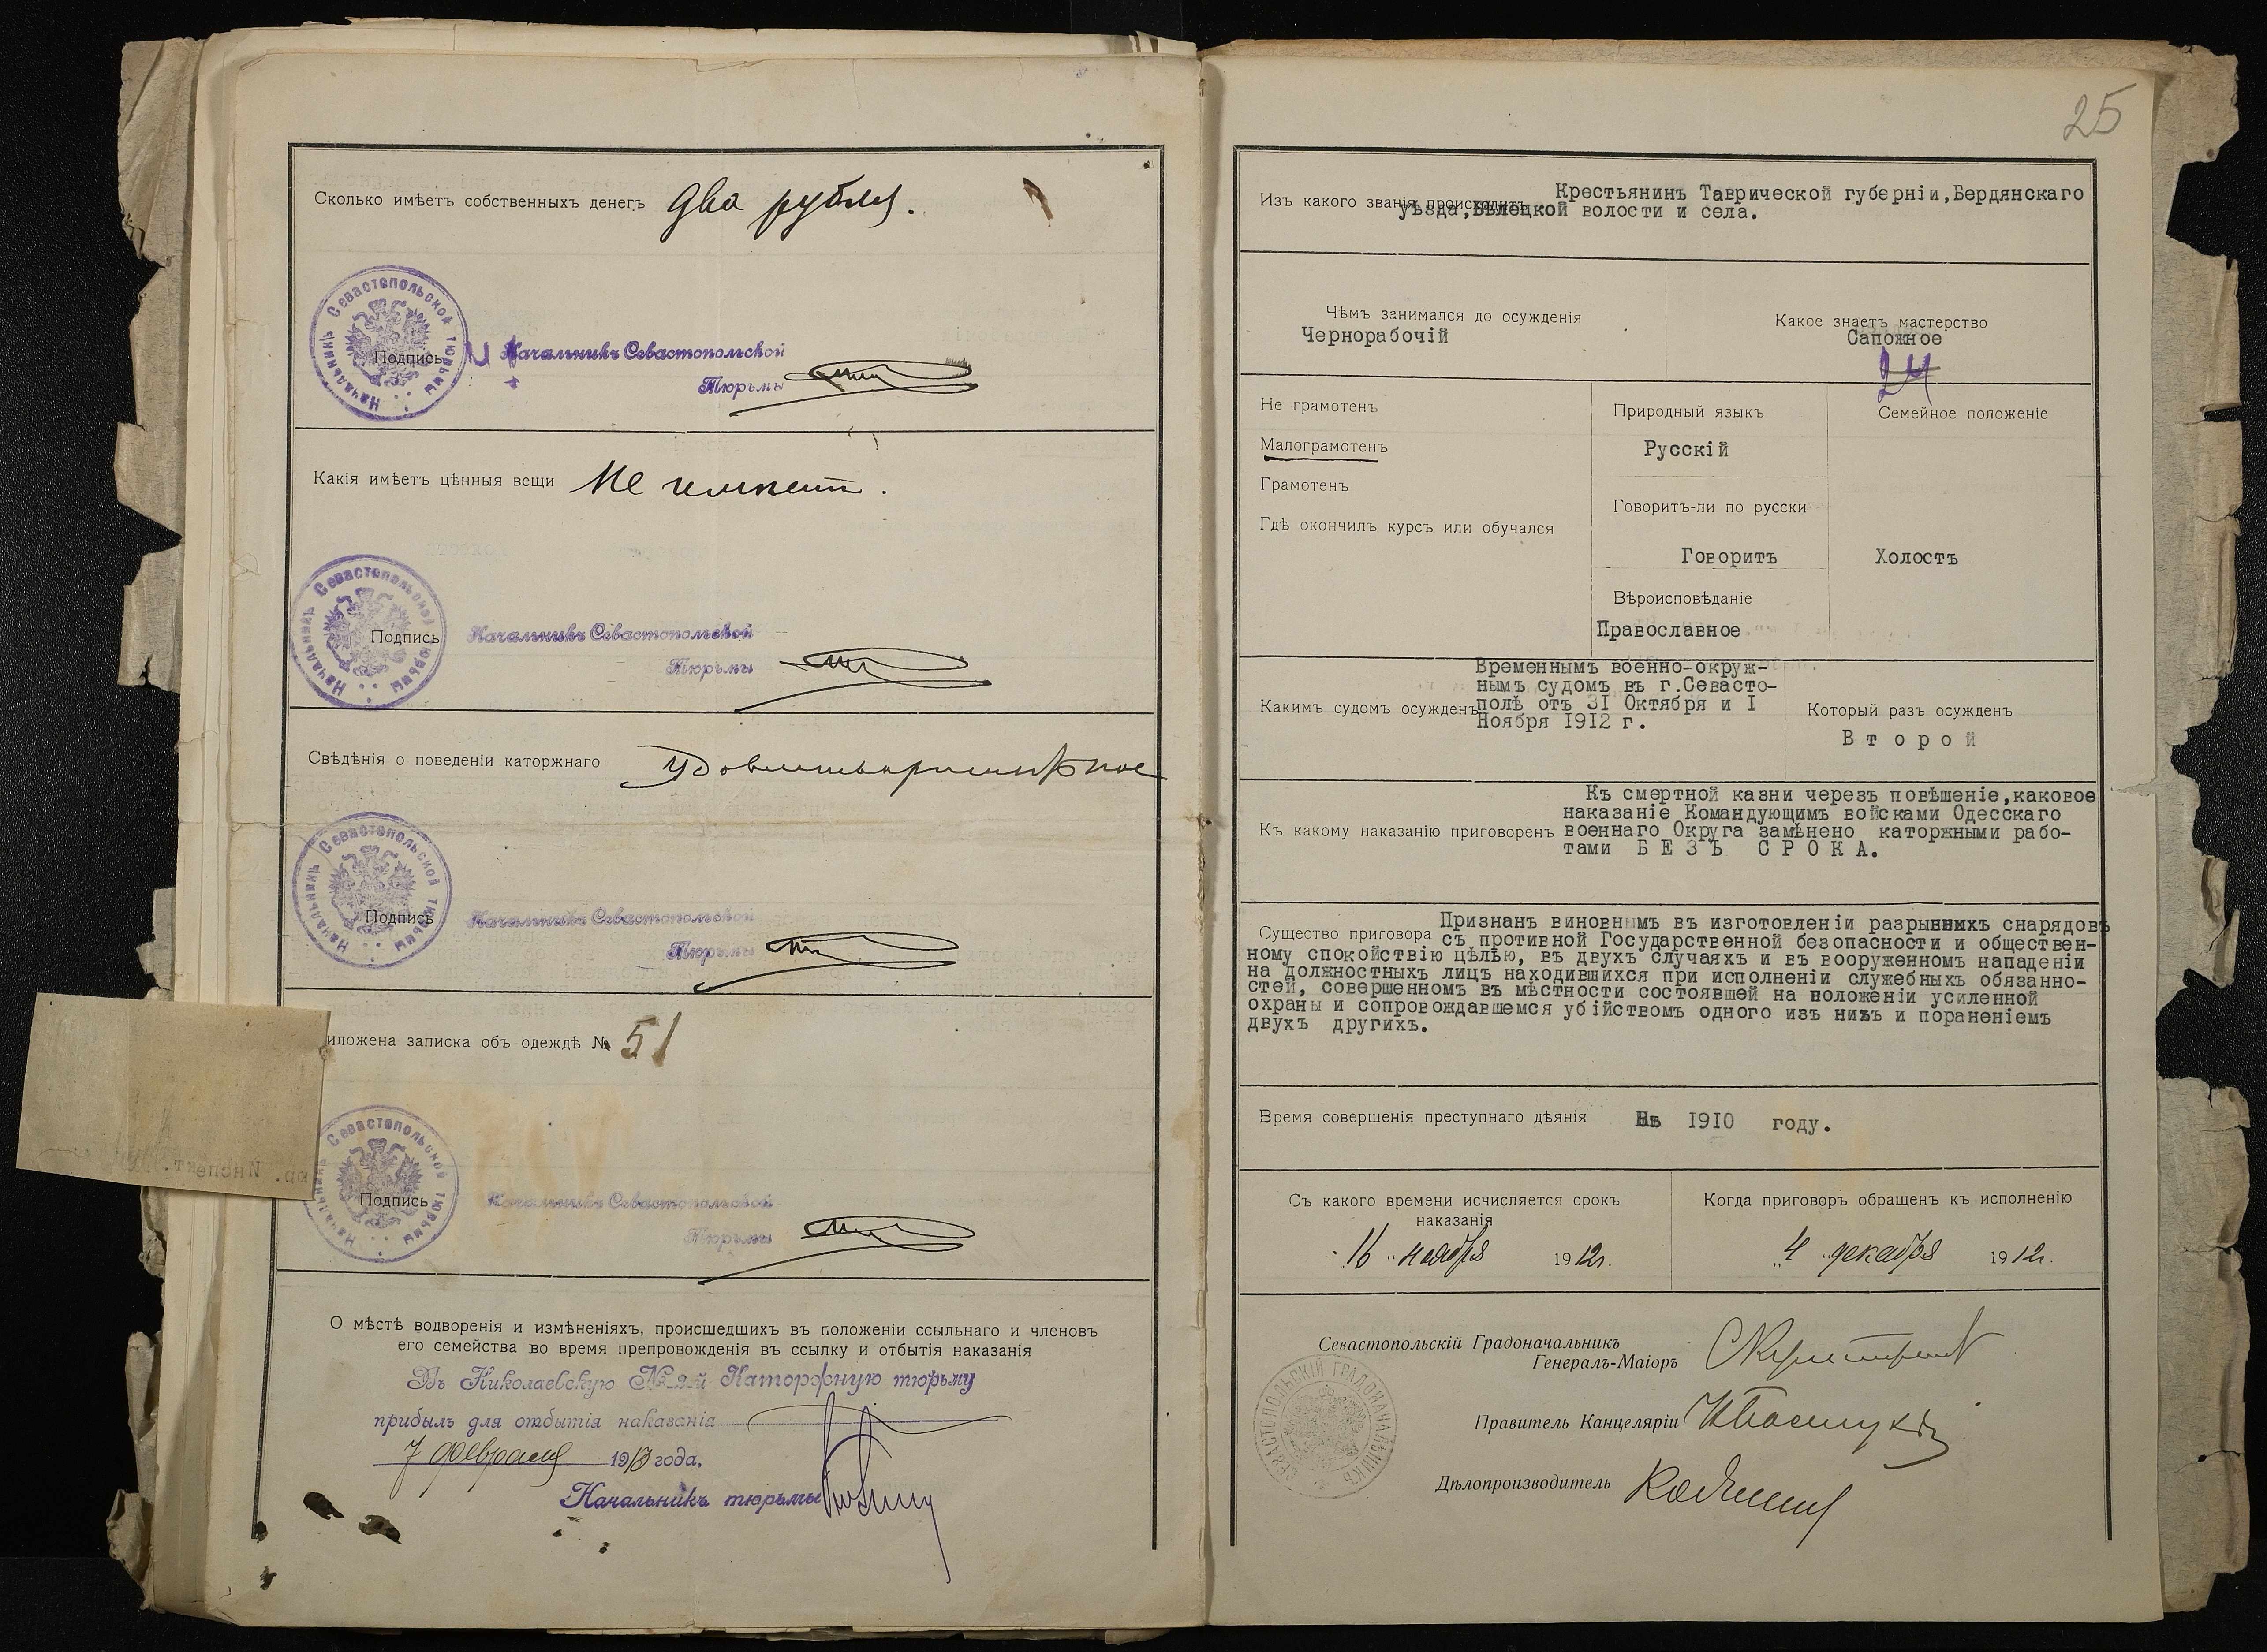 Сколько имѣетъ собственныхъ денегъ два рубля.
Начальникъ Севастопольской тюрьмы
Подпись
Начальникъ Севастопольской
Тюрьмы
Какія имѣетъ цѣнныя вещи Не имѣетъ.
Начальникъ Севастопольской тюрьмы
Подпись
Начальникъ Севастопольской
Тюрьмы
Свѣдѣнія о поведеніи каторжнаго удовлетворительное
Начальникъ Севастопольской тюрьмы
Подпись
Начальникъ Севастопольской
Тюрьмы
иложена записка объ одеждѣ № 51
Начальникъ Севастопольской тюрьмы
Подпись
Начальникъ Севастопольской
Тюрьмы
юр. Инспект.
О мѣстѣ водворенія и измѣненіяхъ, происшедшихъ въ положеніи ссыльнаго и членовъ
его семейства во время препровожденія въ ссылку и отбытія наказанія
Въ Николаевскую № 2-й Каторжную тюрьму
прибылъ для отбытія наказанія
7 февраля 1913 года,
Начальникъ тюрьмы
25
Изъ какого званія происходитъ Крестьянинъ Таврической губерніи, Бердянскаго
уѣзда, Бѣлецкой волости и села.
Чѣмъ занимался до осужденія
Чернорабочій
Какое знаетъ мастерство
Сапожное
24
Не грамотенъ
Малограмотенъ
Грамотенъ
Гдѣ окончилъ курсъ или обучался
Природный языкъ
Русскій
Говоритъ-ли по русски
Говоритъ
Вѣроисповѣданіе
Православное
Семейное положеніе
Холостъ
Какимъ судомъ осужденъ
Временнымъ военно-окруж-
нымъ судомъ въ г.Севасто-
полѣ отъ 31 Октября и I
Ноября 1912 г.
Который разъ осужденъ
Второй
Къ какому наказанію приговоренъ
Къ смертной казни черезъ повѣшеніе, каковое
наказаніе Командующимъ войсками Одесскаго
военнаго Округа замѣнено каторжными рабо-
тами БЕЗЪ СРОКА.
Существо приговора Признанъ виновнымъ въ изготовленіи разрывныхъ снарядовъ
съ противной Государственной безопасности и обществен-
ному спокойствію цѣлью, въ двухъ случаяхъ и въ вооруженномъ нападеніи
на должностныхъ лицъ находившихся при исполненіи служебныхъ обязанно-
стей, совершенномъ въ мѣстности состоявшей на положеніи усиленной
охраны и сопровождавшемся убійствомъ одного изъ нихъ и пораненіемъ
двухъ другихъ.
Время совершенія преступнаго дѣянія Въ 1910 году.
Съ какого времени исчисляется срокъ
наказанія
16 ноября 1912г.
Когда приговоръ обращенъ къ исполненію
4 декабря 1912г.
Севастопольскій Градоначальникъ
Генералъ-Маіоръ
СЕВАСТОПОЛЬСКІЙ ГРАДОНАЧАЛЬНИКЪ
Правитель Канцеляріи
Дѣлопроизводитель